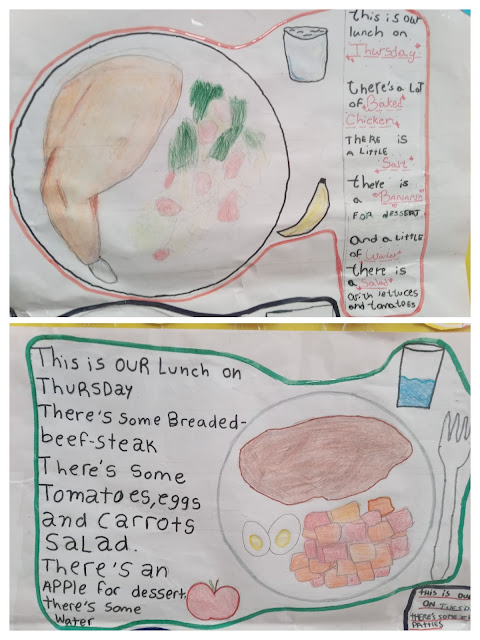 this is our
lunch on
Thursday
there's a LOT
of Baked
Chicken
THERE is
A LITTLE
Salt
there is
a Banana
FOR DESSERT
and a LITTLE
of Water
there is
a Salad
with lettuces
and tomatoes
This is OUR Lunch on
THURSDAY
There's some Breaded-
beef-steak
There's some
Tomatoes, eggs
and carrots
salad.
There's an
APPle for dessert,
there's some
Water
THIS IS OU
ON TUESD
THERE'S SOME
PATTIES